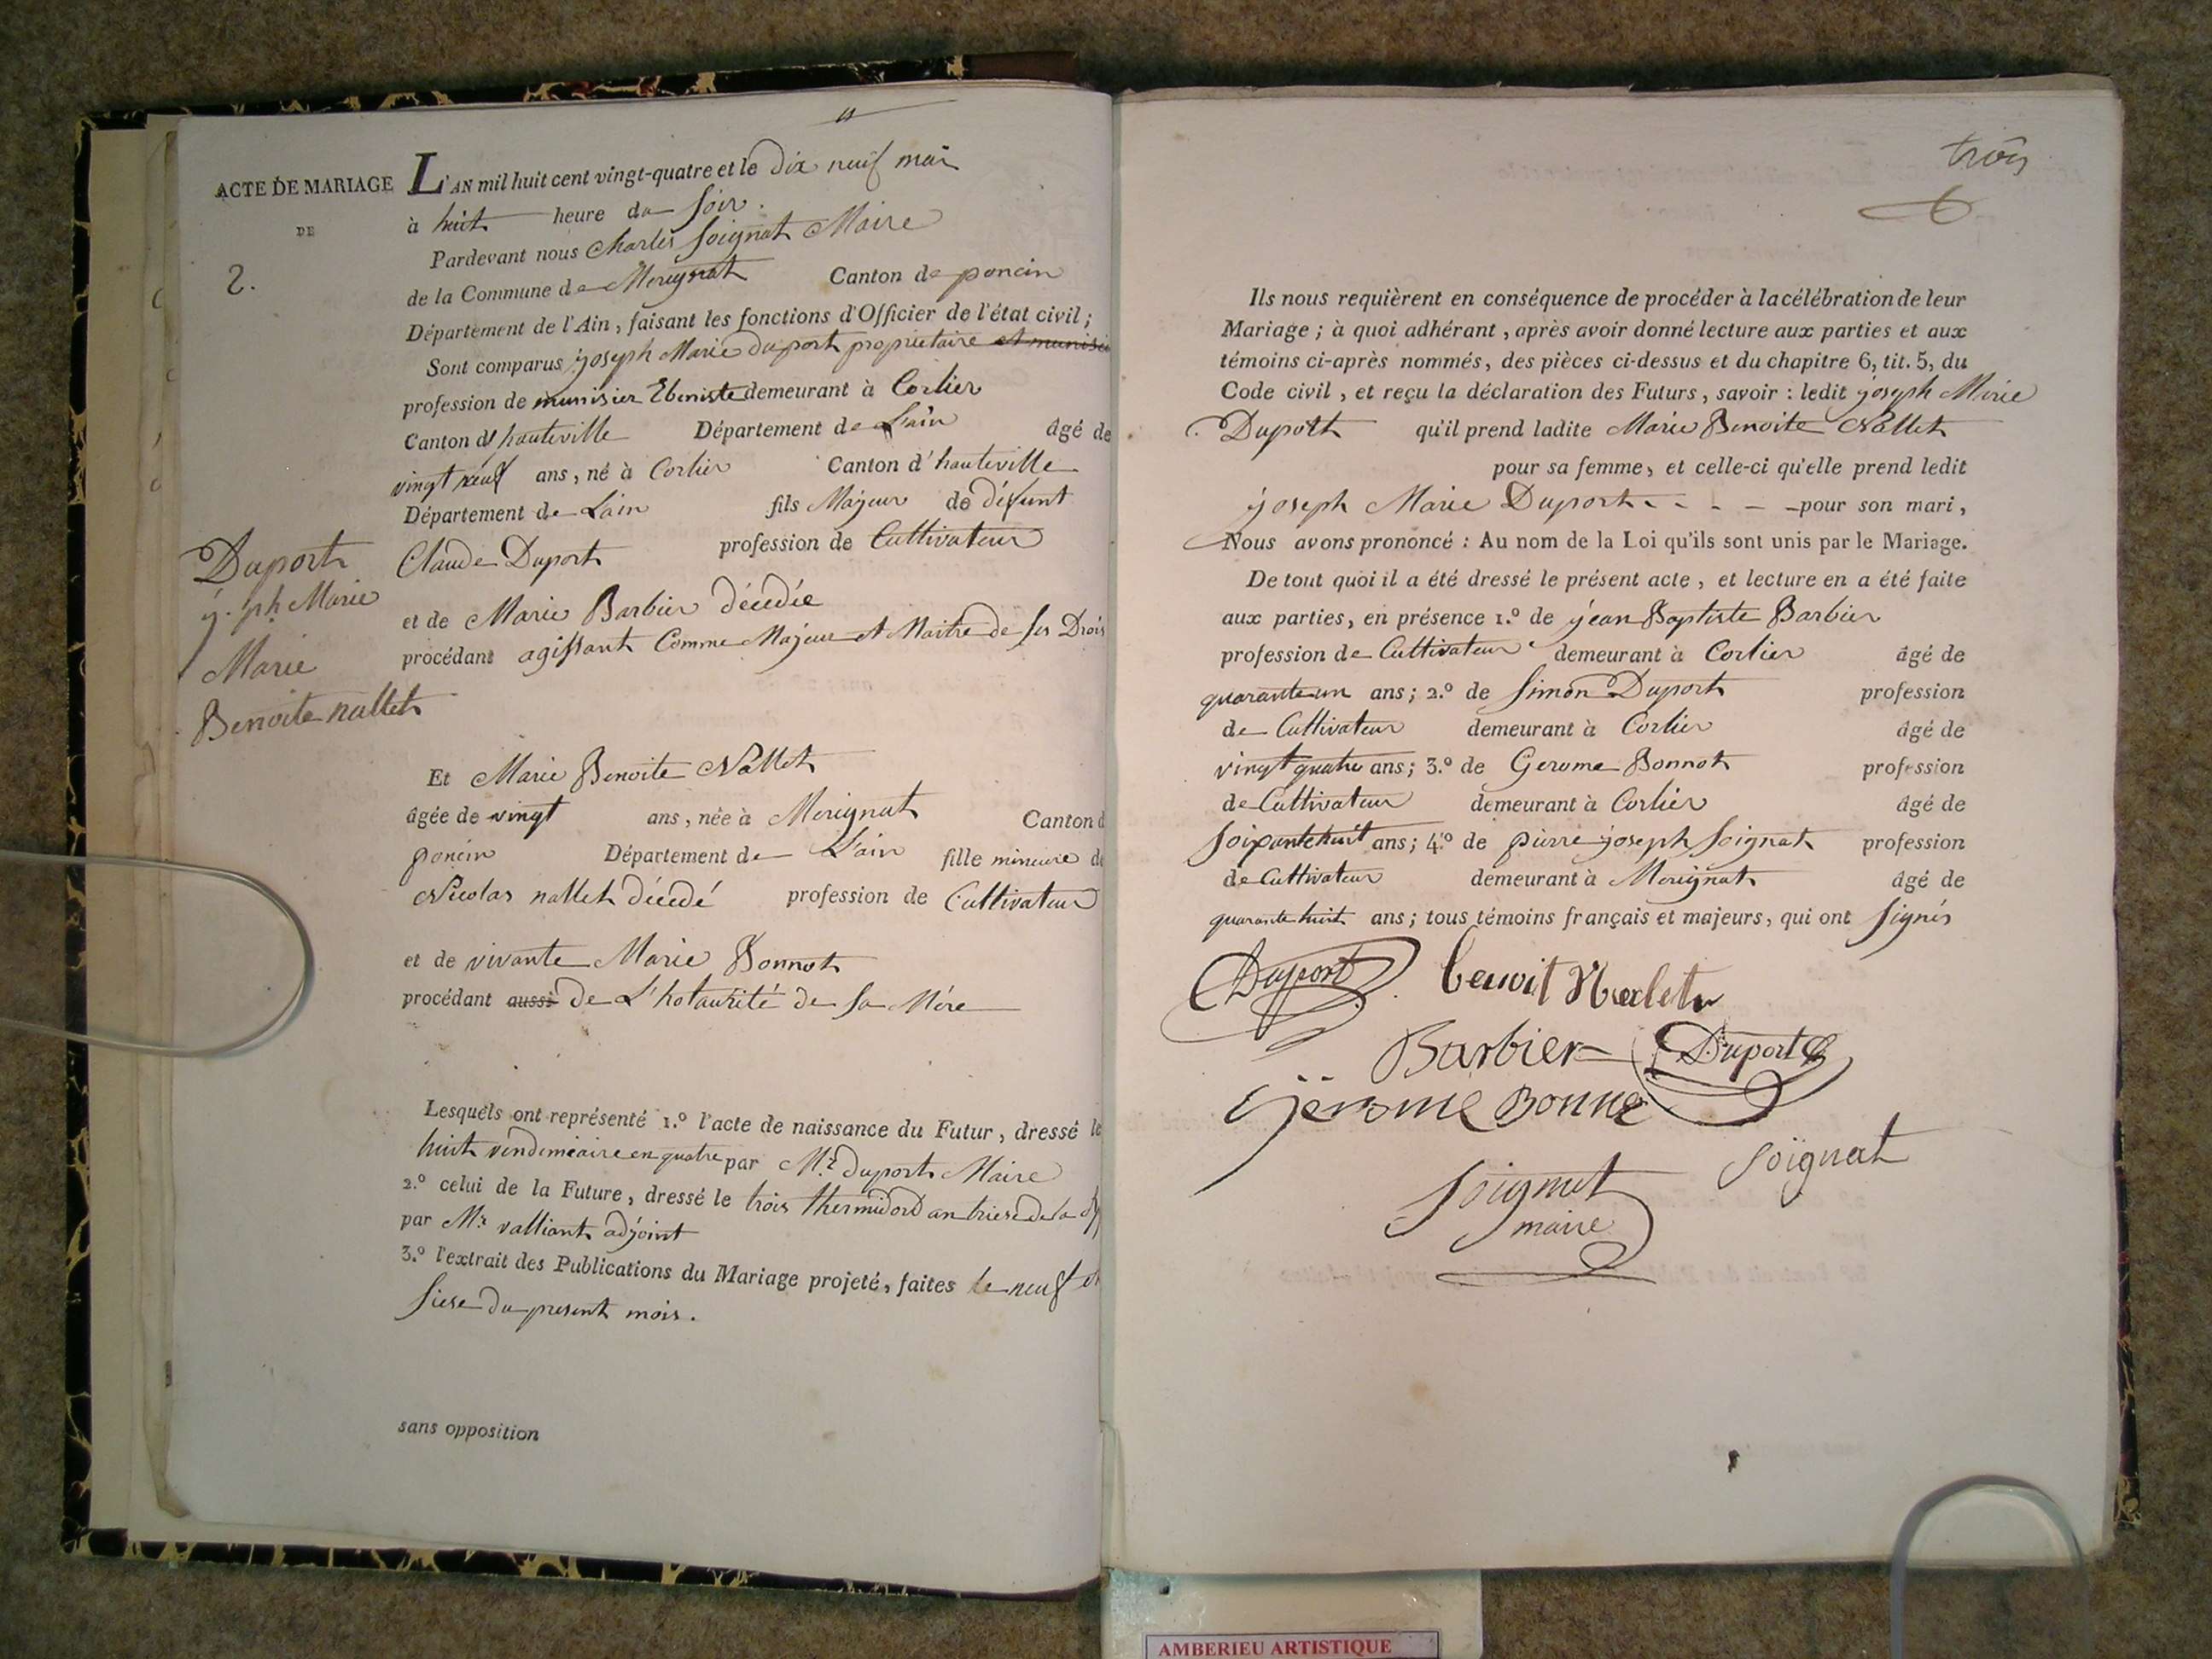 ACTE DE MARIAGE
DE
2.
Duport
j.ph Marie
Marie
Benoite nallet
L'AN mil huit cent vingt-quatre et le dix neuf mai
à huit heure du soir.
Pardevant nous Charles Soignat Maire
de la Commune de Merignat Canton de poncin
Département de l'Ain, faisant les fonctions d'Officier de l'état civil;
Sont comparus joseph Marie duport propriétaire et munisie
profession de munisier Ebeniste demeurant à Corlier
Canton d'hauteville Département de L'ain âgé de
vingt neuf ans, né à Corlier Canton d'hauteville
Département de Lain fils Majeur de défunt
Claude Duport profession de Cultivateur
et de Marie Barbier décédée
procédant agissant Comme Majeur et Maitre de ses Drois
Et Marie Benoite Nallet
âgée de vingt ans, née à Merignat Canton d
poncin Département de L'ain fille mineure de
Nicolas nallet décédé profession de Cultivateur
et de vivante Marie Bonnot
procédant aussi de L'hotaurité de sa Mére
Lesquels ont représenté 1.º l'acte de naissance du Futur, dressé le
huit vendemiaire en quatre par Mr. Duport Maire
2.º celui de la Future, dressé le trois thermidord an triese de la
par Mr. valliant adjoint
3.º l'extrait des Publications du Mariage projeté, faites le neuf et
siese du present mois.
sans opposition
trois
Ils nous requièrent en conséquence de procéder à la célébration de leur
Mariage; à quoi adhérant, après avoir donné lecture aux parties et aux
témoins ci-après nommés, des pièces ci-dessus et du chapitre 6, tit. 5, du
Code civil, et reçu la déclaration des Futurs, savoir: ledit joseph Marie
Duport qu'il prend ladite Marie Benoite Nallet
pour sa femme, et celle-ci qu'elle prend ledit
joseph Marie Duport - - - - pour son mari,
Nous avons prononcé: Au nom de la Loi qu'ils sont unis par le Mariage.
De tout quoi il a été dressé le présent acte, et lecture en a été faite
aux parties, en présence 1.º de jean Baptiste Barbier
profession de Cultivateur demeurant à Corlier âgé de
quarante un ans; 2.º de Simon Duport profession
de Cultivateur demeurant à Corlier âgé de
vingt quatre ans; 3.º de Gerome Bonnot profession
de Cultivateur demeurant à Corlier âgé de
soixante huit ans; 4.º de pierre joseph Soignat profession
de Cultivateur demeurant à Merignat âgé de
quarante huit ans; tous témoins français et majeurs, qui ont signés
Duport benoit Nalet
Barbier Duport
jérome Bonne
Soignat
Soignat
maire
AMBERIEU ARTISTIQUE